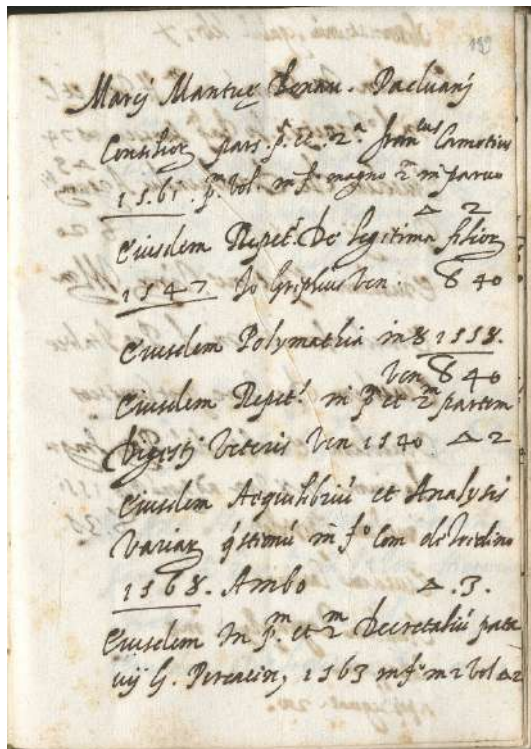 192
Marcj Mantuę Benau. Paduanj
Consilior pars pª et 2ª fran^cus Camotius
1561. p^m vol. in f° magno 2^m in paruo
Δ 2
Eiusdem Repet. De legitima filior
1547. Jo Griphius Ven. 8 40
Eiusdem Polymathia in 8 1558.
Ven 8 40
Eiusdem Repet. in p^m et 2^m partem
Digestj Veteris Ven 1540 Δ 2
Eiusdem Aequilibriú et Analysis
Variar q́stionú in f° Com de Tredino
1568. Ambo Δ.3.
Eiusdem In p^m et 2^m Decretaliú pata
uij G. Percacin, 1563 in f° in 2 vol Δ 2